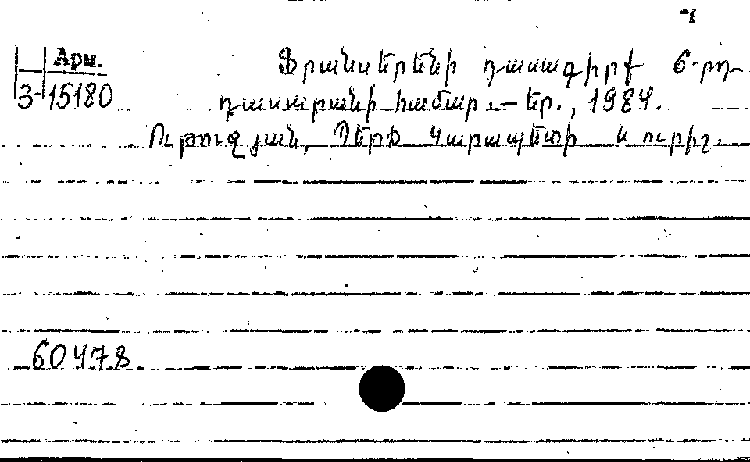 Арм.
3-15180
Ֆրանսերենի դասագիրք 6-րդ
դասարանի համար .— Եր., 1984.
Ութուջյան, Պերճ Կարապետի և ուրիշ.
60478